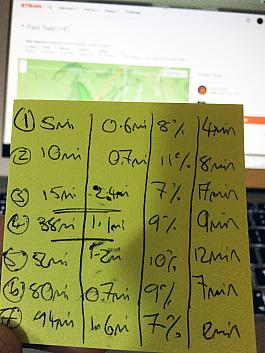 STRAVA
Park Rash HC
① 5mi 0.6mi 8% 4min
② 10mi 0.7mi 11% 8min
③ 15mi 2.4mi 7% 17min
④ 38mi 1.1mi 9% 9min
⑤ 52mi 1.2mi 10% 12min
⑥ 80mi 0.7mi 9% 7min
7 94mi 1.6mi 7%